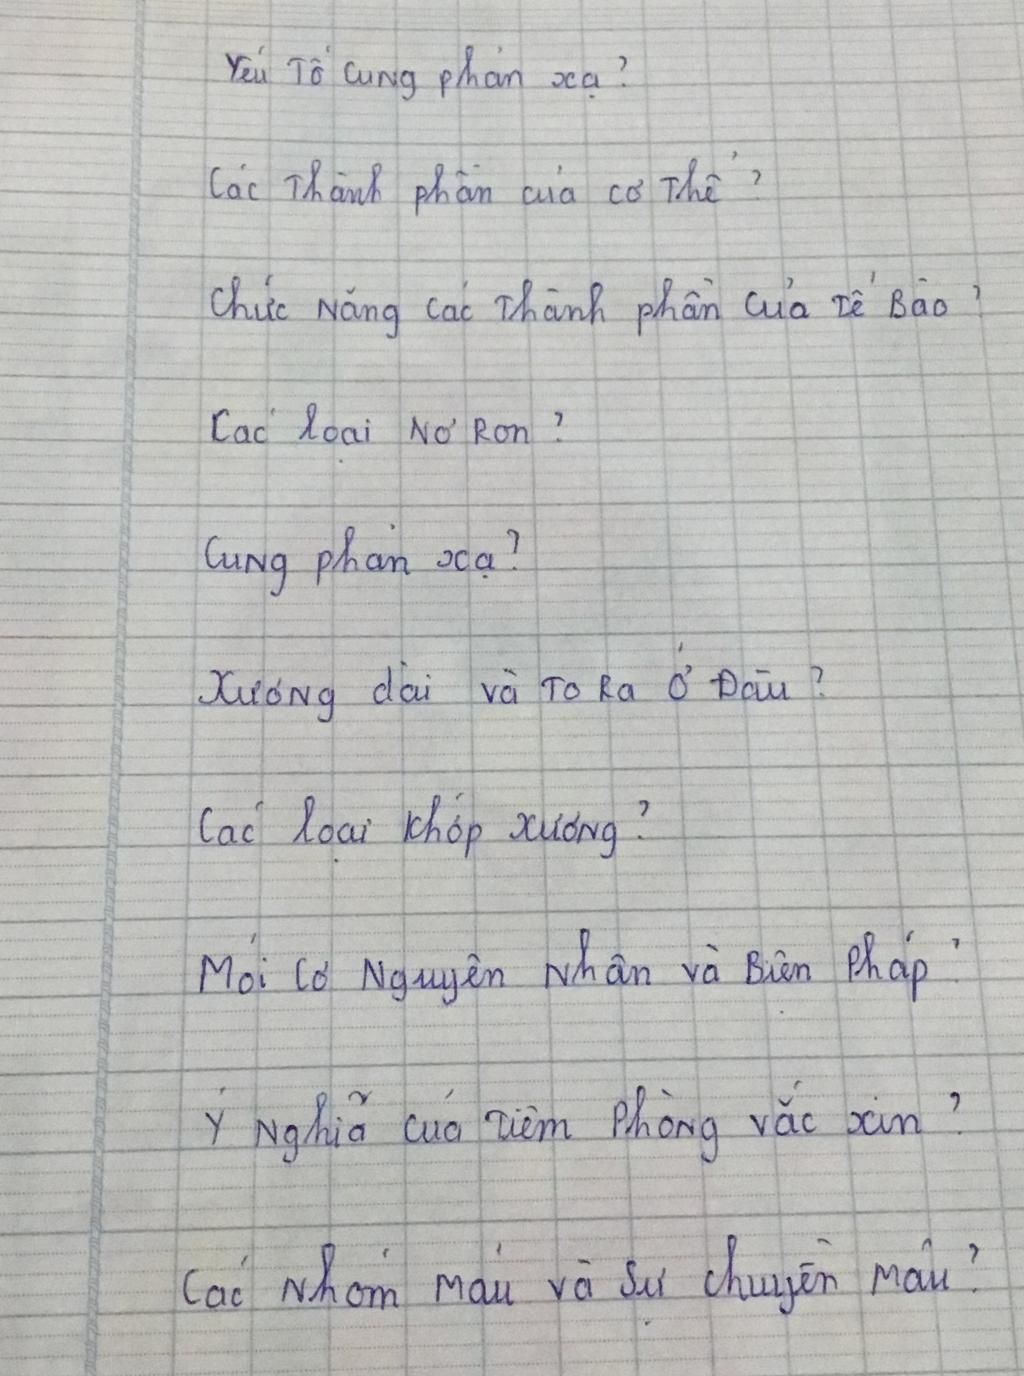 Yếu Tố cung phản xạ?
Các Thành phần của cơ Thể?
Chức Năng các Thành phần của Tế Bào?
Các loại Nơ Ron?
Cung phản xạ?
Xương dài và To Ra Ở Đâu?
Các loại khớp xương?
Mỏi Cơ Nguyên Nhân và Biện Pháp?
Ý Nghĩa của Tiêm Phòng vắc xin?
Các Nhóm máu và Sự chuyền máu?